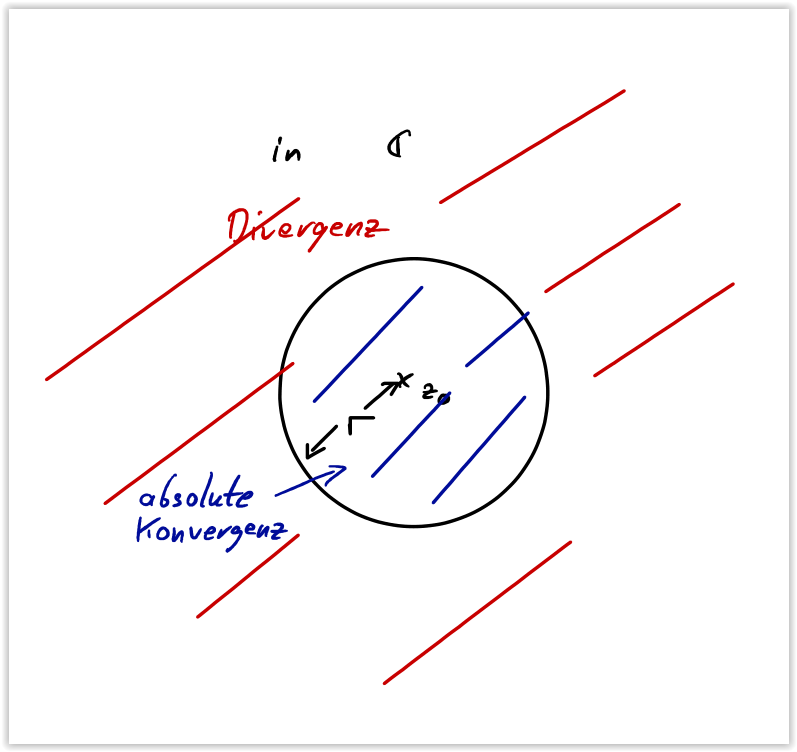 in ℂ
Divergenz
z₀
r
absolute
Konvergenz